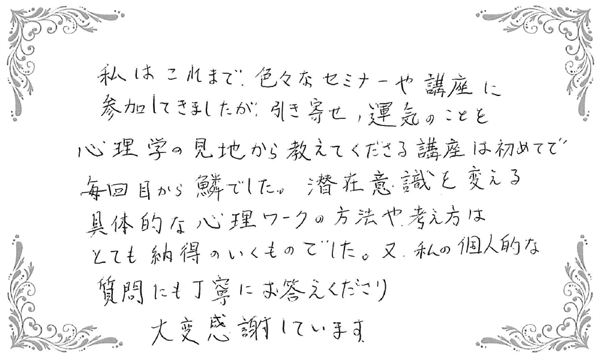 私はこれまで、色々なセミナーや講座に
参加してきましたが、引き寄せ、運気のことを
心理学の見地から教えてくださる講座は初めてで
毎回目から鱗でした。潜在意識を変える
具体的な心理ワークの方法や、考え方は
とても納得のいくものでした。又、私の個人的な
質問にも丁寧にお答えくださり
大変感謝しています